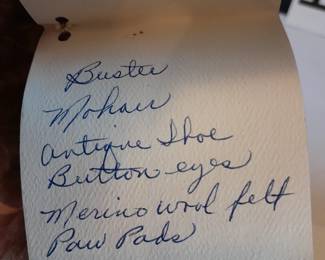 Buster
Mohair
Antique Shoe
Button eyes
Merino wool felt
Paw Pads